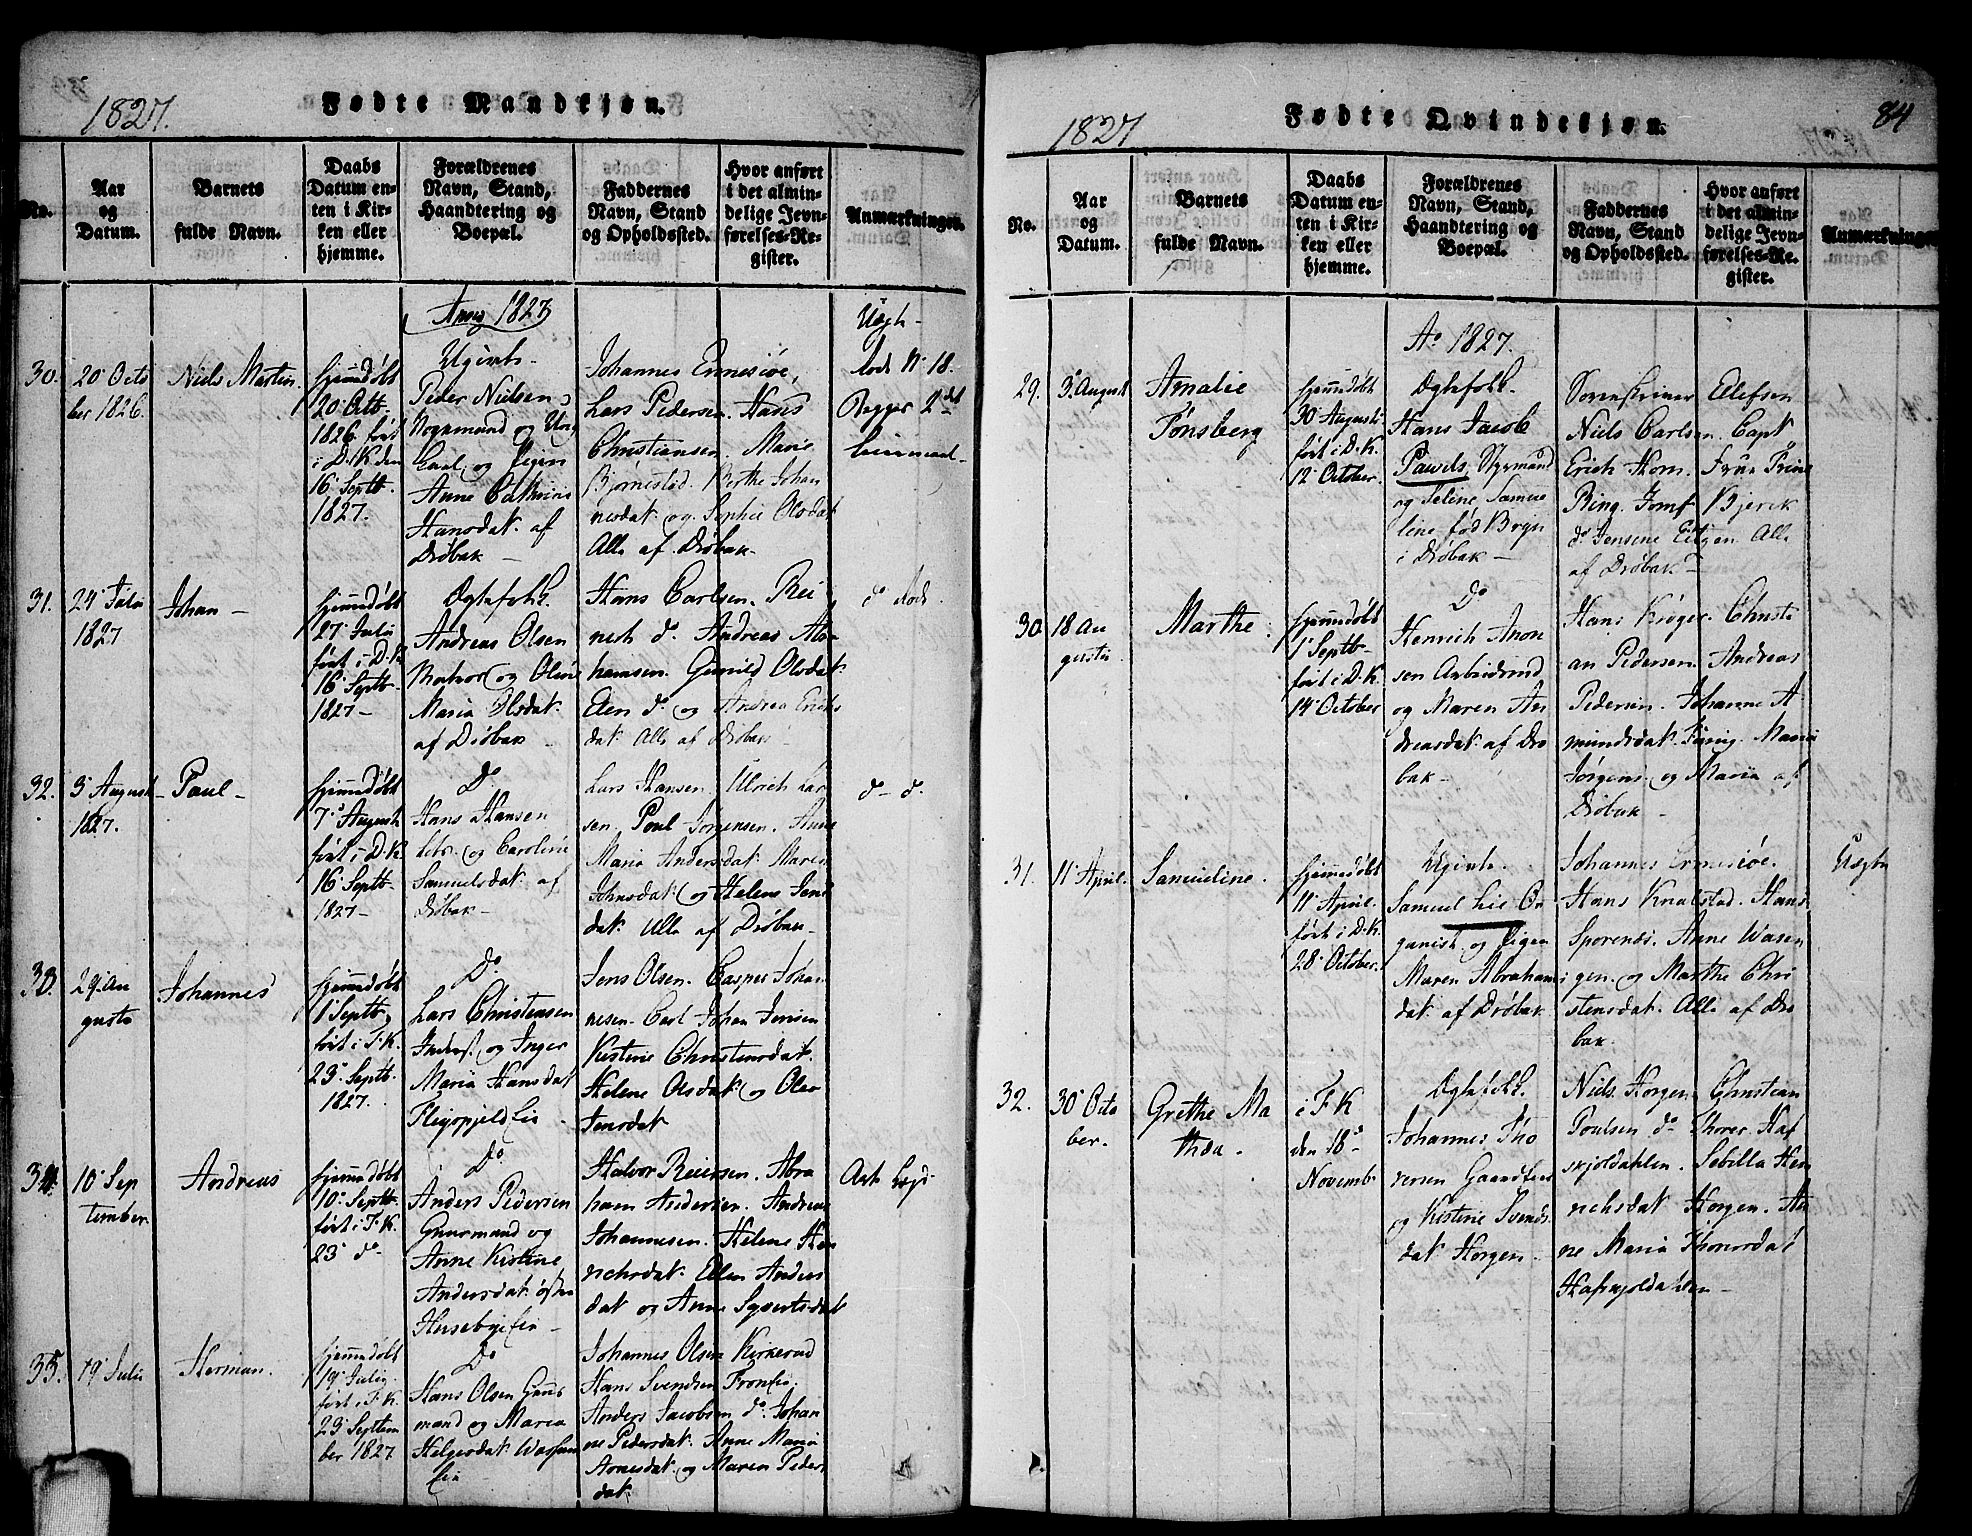 1827.
Fødte Mandkjøn.
No.
Aar
og
Datum.
Barnets
fulde Navn.
Daabs
Datum en-
ten i Kir-
ken eller
hjemme.
Forældrenes
Navn, Stand,
Haandtering og
Boepæl.
Faddernes
Navn, Stand
og Opholdssted.
Hvor anført
i det almin-
delige Jevn-
førelses-Re-
gister.
Anmærkninger.
Anno 1827
30.
20 Octo
ber 1826.
Niels Martin
hjemmedøbt
20 Octb
1826 ført
i D.K. den
16 Septb
1827.
Ugivte
Peder Nielsen
og
Anne Cathrine
Hansdat. af
Drøbak
Johannes
Lars Pedersen. Hans
Christiansen. Marie
Bjørnestad. Berthe Johan
nesdat. og Sophie Olsdat
Alle af Drøbak
No 18.
31.
24 Juli
1827
Johan
hjemmedøbt
27 Julii
ført i D.K.
16 Septb
1827
Ægtefolk.
Andreas Olsen
og Oline
Maria Olsdat.
af Drøbak
Hans Carlsen. Rei
nert do. Andreas Abra
hamsen. Gunild Olsdat.
Elen do og Andrea Erichs
dat. Alle af Drøbak
32.
3 August
1827.
Paul
hjemmedøbt
7 August
ført i D.K.
16 Septb
1827
Do
Hans Hansen
og Caroline
Samuelsdat. af
Drøbak
Lars Hansen. Ulrich Lar
sen. Poul Jørgensen. Anne
Maria Andersdat. Maren
Johnsdat. og Helene Jens
dat. Alle af Drøbak
33.
29 Au
gusti
Johannes
hjemmedøbt
1 Septb
ført i F.K.
23 Septb.
1827.
Do
Lars Christensen
og Inger
Maria Hansdat
Jens Olsen. Casper Johan
nesen. Carl Johan Jensen
Kistine Christensdat.
Helene Olsdat. og Olea
Jensdat
34.
10 Sep
tember
Andreas
hjemmedøbt
10 Septb
ført i F.K.
23 do
Do
Anders Pedersen
Gaurmand og
Anne Kistine
Andersdat.
Halvor Reiersen. Abra
ham Andersen. Andreas
Johannesen. Helene Hen
richsdat. Ellen Anders
dat og Anne Syvertsdat
35.
19 Julii
Herman.
hjemmedøbt
19 Julii
ført i F.K.
23 Septem
ber 1827.
Do
Hans Olsen
mand og Maria
Helgesdat.
Johannes Olsen Kirkerud
Hans Svendsen
Anders Jacobsen do. Johan
ne Pedersdat. Anne Maria
Arnesdat. og Maren Peders
dat.
1827
Fødte Qvindekjøn.
84
No.
Aar
og
Datum.
Barnets
fulde Navn.
Daabs
Datum en-
ten i Kir-
ken eller
hjemme.
Forældrenes
Navn, Stand,
Haandtering og
Boepæl.
Faddernes
Navn, Stand
og Opholdssted.
Hvor anført
i det almin-
delige Jevn-
førelses-Re-
gister.
Anmærkninger
Ao 1827.
29.
3 August
Amalie
Tønsberg
hjemmedøbt
30 Augusti
ført i D.K.
12 October.
Ægtefolk.
Hans Jacob
Pawels, Styrmand
og Seline Samue
line fød Bryn
i Drøbak
Sorenskriver Ellefsen
Niels Carlsen. Capt
Erich Horn.
Ring. Jomf. Bjerck
do Jensene Alle
af Drøbak
30.
18 Au
gusti.
Marthe
hjemmedøbt
1 Septb
ført i D.K.
14 October
Do
Henrich Aron
sen Arbeidsmd
og Maren An
dreasdat. af Drø
bak
Hans Krøger. Christi
an Pedersen. Andreas
Pedersen. Johanne A
mundsdat. Maria
Jørgens. og Maria af
Drøbak
31.
11 April.
Samueline.
hjemmedøbt
11 April.
ført i D.K.
28 October.
Ugivte.
Samuel Lie Or
ganist. og Pigen
Maren Abrahams
dat. af Drøbak
Johannes
Hans Knatstad. Hans
Sporenæs. Anne Wasen
gen. og Marthe Chri
stensdat. Alle af Drø
bak.
Uægte
32.
30 Octo
ber.
Grethe Ma
thea.
i F.K
den 18
Novemb.
Ægtefolk.
Johannes Tho
resen
og Kistine Svends
dat Horgen.
Niels Horgen. Christian
Poulsen do Thorer Haf
skjoldahlen. Sebilla Hen
richsdat Horgen. An
ne Maria Thoresdat
Hafskjoldahlen